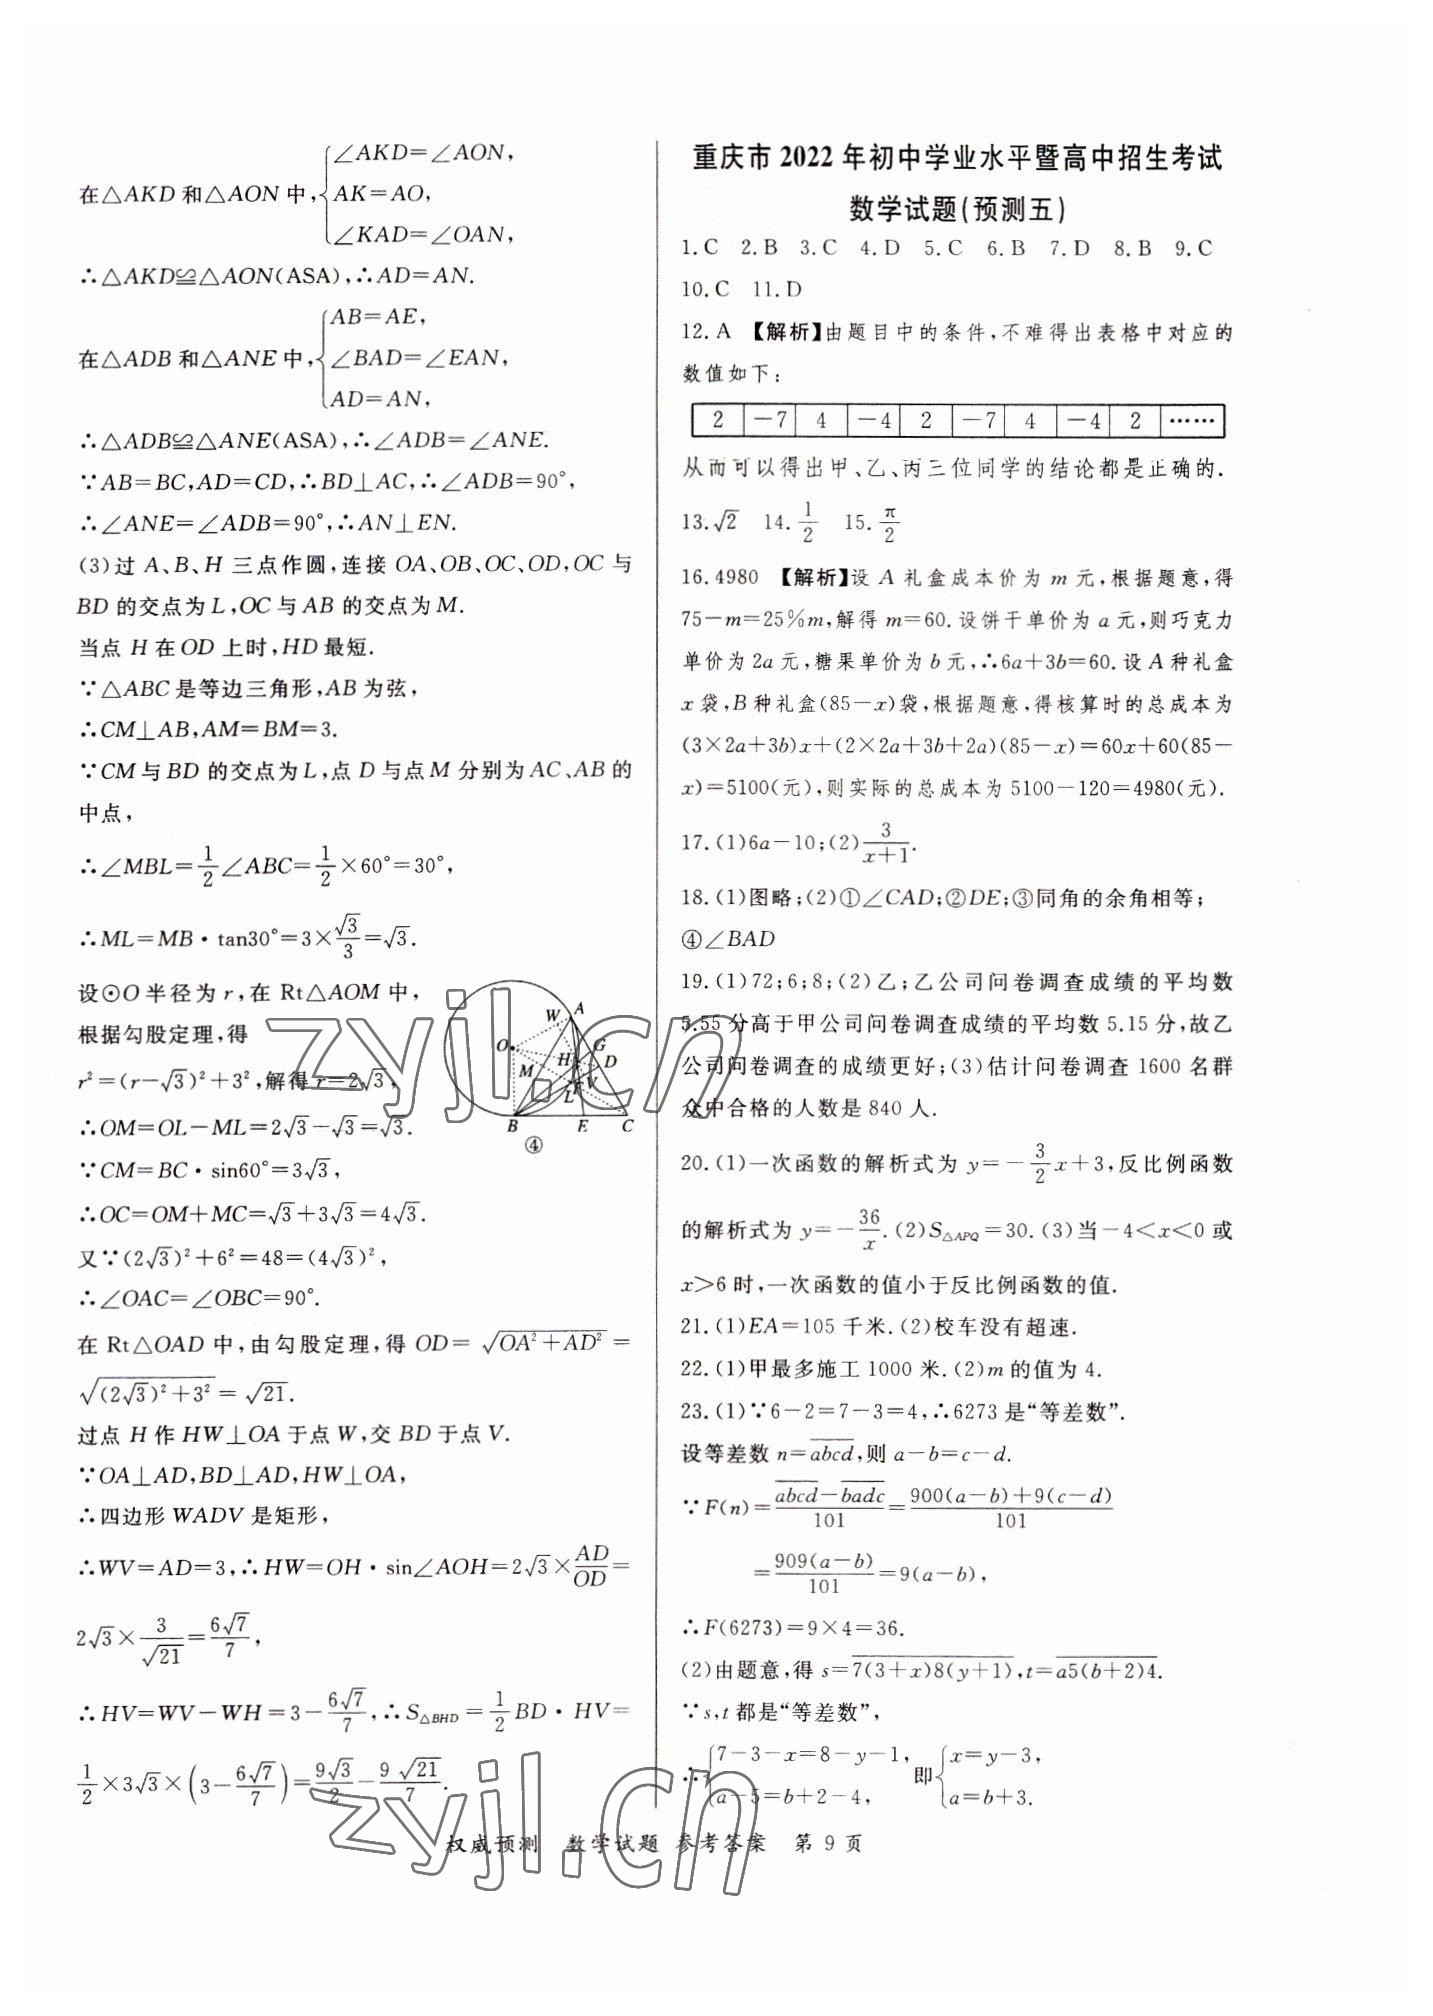 ∠AKD=∠AON,
在△AKD和△AON中,{AK=AO,
∠KAD=∠OAN,
∴△AKD≌△AON(ASA),∴AD=AN.
AB=AE,
在△ADB和△ANE中,{∠BAD=∠EAN,
AD=AN,
∴△ADB≌△ANE(ASA),∴∠ADB=∠ANE.
∵AB=BC,AD=CD,∴BD⊥AC,∴∠ADB=90°,
∴∠ANE=∠ADB=90°,∴AN⊥EN.
(3)过 A、B、H 三点作圆,连接 OA、OB、OC、OD,OC与
BD的交点为L,OC与AB的交点为M.
当点 H 在 OD 上时,HD最短.
∵△ABC是等边三角形,AB为弦,
∴CM⊥AB,AM=BM=3.
∵CM与BD的交点为L,点D与点M分别为AC、AB的
中点,
∴∠MBL=1/2∠ABC=1/2×60°=30°,
∴ML=MB·tan30°=3×√3/3=√3.
设⊙O半径为r,在Rt△AOM中,
根据勾股定理,得
r²=(r-√3)²+3²,解得r=2√3,
∴OM=OL-ML=2√3-√3=√3.
∵CM=BC·sin60°=3√3,
∴OC=OM+MC=√3+3√3=4√3.
又∵(2√3)²+6²=48=(4√3)²,
∴∠OAC=∠OBC=90°.
在Rt△OAD中,由勾股定理,得OD=√(OA²+AD²)=
√((2√3)²+3²)=√21.
过点H作HW⊥OA于点W,交BD于点V.
∵OA⊥AD,BD⊥AD,HW⊥OA,
∴四边形WADV是矩形,
∴WV=AD=3,∴HW=OH·sin∠AOH=2√3×AD/OD=
2√3×3/√21=6√7/7,
∴HV=WV-WH=3-6√7/7,∴S△BHD=1/2BD·HV=
1/2×3√3×(3-6√7/7)=9√3/2-9√21/7.
W A
O G
H D
M
L F V
B E C
④
重庆市2022年初中学业水平暨高中招生考试
数学试题(预测五)
1.C 2.B 3.C 4.D 5.C 6.B 7.D 8.B 9.C
10.C 11.D
12.A 【解析】由题目中的条件,不难得出表格中对应的
数值如下:
2 -7 4 -4 2 -7 4 -4 2 ……
从而可以得出甲、乙、丙三位同学的结论都是正确的.
13.√2 14.1/2 15.π/2
16.4980 【解析】设A礼盒成本价为m元,根据题意,得
75-m=25%m,解得m=60.设饼干单价为a元,则巧克力
单价为2a元,糖果单价为b元,∴6a+3b=60.设A种礼盒
x袋,B种礼盒(85-x)袋,根据题意,得核算时的总成本为
(3×2a+3b)x+(2×2a+3b+2a)(85-x)=60x+60(85-
x)=5100(元),则实际的总成本为5100-120=4980(元).
17.(1)6a-10;(2)3/(x+1).
18.(1)图略;(2)①∠CAD;②DE;③同角的余角相等;
④∠BAD
19.(1)72;6;8;(2)乙;乙公司问卷调查成绩的平均数
5.55分高于甲公司问卷调查成绩的平均数5.15分,故乙
公司问卷调查的成绩更好;(3)估计问卷调查1600名群
众中合格的人数是840人.
20.(1)一次函数的解析式为y=-3/2x+3,反比例函数
的解析式为y=-36/x.(2)S△APQ=30.(3)当-4<x<0或
x>6时,一次函数的值小于反比例函数的值.
21.(1)EA=105千米.(2)校车没有超速.
22.(1)甲最多施工1000米.(2)m的值为4.
23.(1)∵6-2=7-3=4,∴6273是“等差数”.
设等差数n=a̅b̅c̅d̅,则a-b=c-d.
∵F(n)=(a̅b̅c̅d̅-b̅a̅d̅c̅)/101=(900(a-b)+9(c-d))/101
=909(a-b)/101=9(a-b),
∴F(6273)=9×4=36.
(2)由题意,得s=7(3+x)8(y+1),t=a5(b+2)4.
∵s,t都是“等差数”,
∴{7-3-x=8-y-1, 即{x=y-3,
a-5=b+2-4, a=b+3.
权威预测 数学试题 参考答案 第9页
zyjl.cn
zyjl.cn